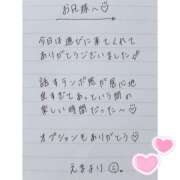 お兄様へ♡
今日は遊びに来てくれて
ありがとうございました!
話すテンポ感が居心地
良すぎてあっという間の
楽しい時間だった〜♡
オプションもありがとう♡
えまより